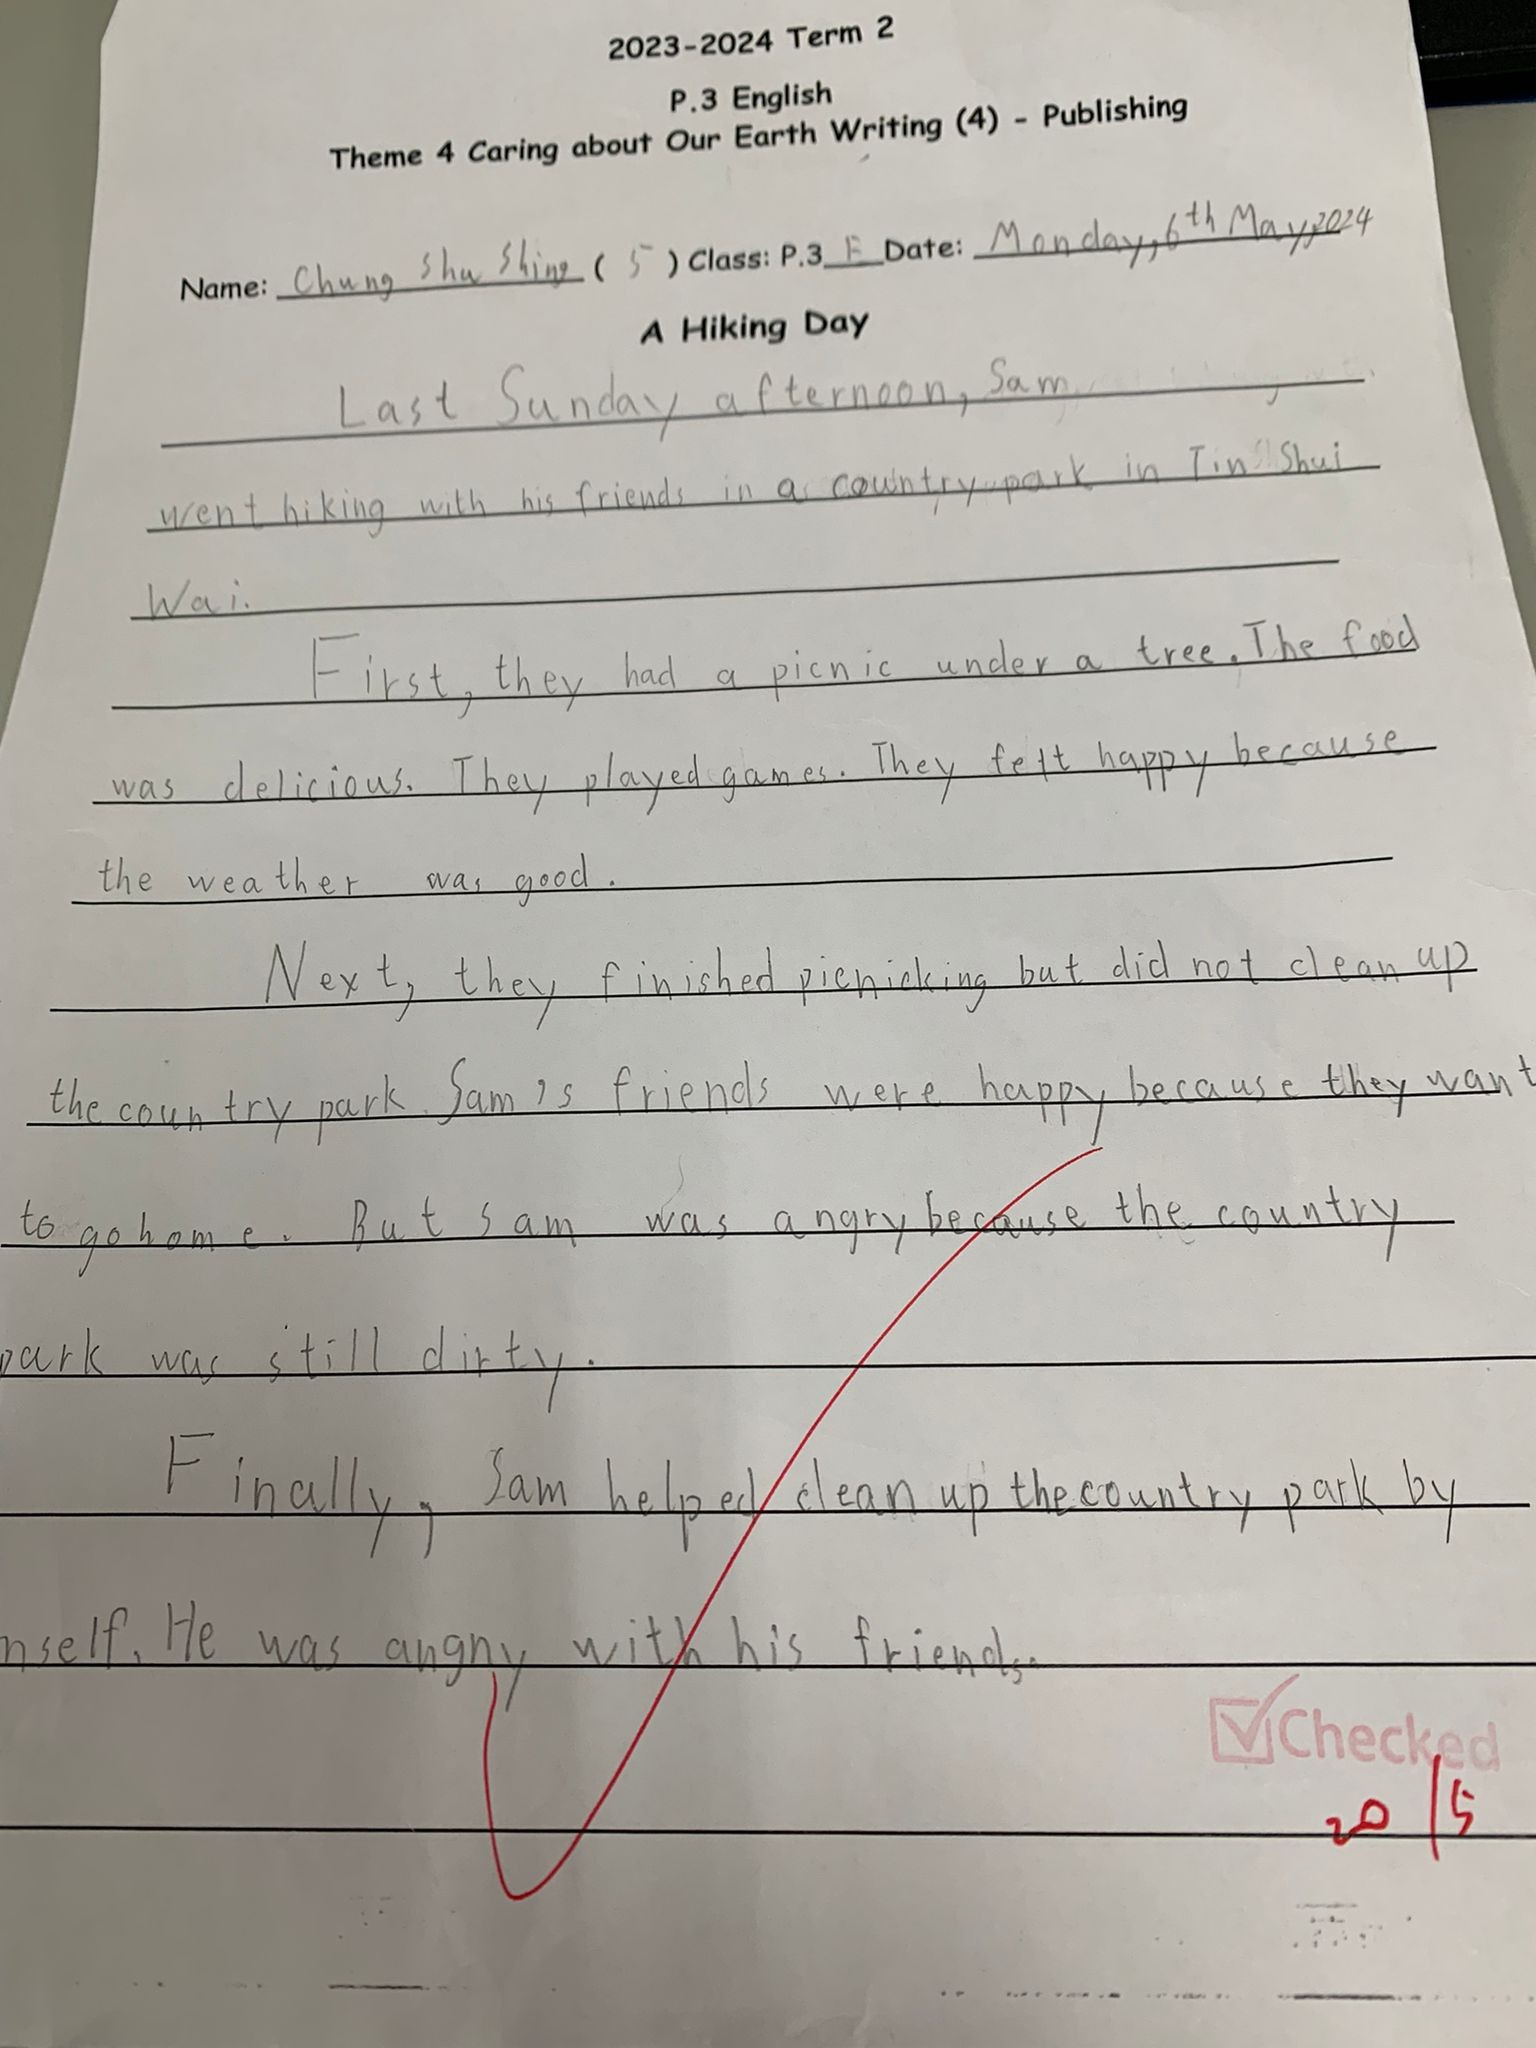 2023-2024 Term 2
P.3 English
Theme 4 Caring about Our Earth Writing (4) - Publishing
Name: Chung Shu Shing ( 5 ) Class: P.3 E Date: Monday, 6th May, 2024
A Hiking Day
Last Sunday afternoon, Sam
went hiking with his friends in a country park in Tin Shui
Wai.
First, they had a picnic under a tree. The food
was delicious. They played games. They felt happy because
the weather was good.
Next, they finished picnicking but did not clean up
the country park. Sam's friends were happy because they want
to go home. But sam was angry because the country
park was still dirty.
Finally, Sam helped clean up the country park by
mself. He was angny with his friends.
Checked
20/5